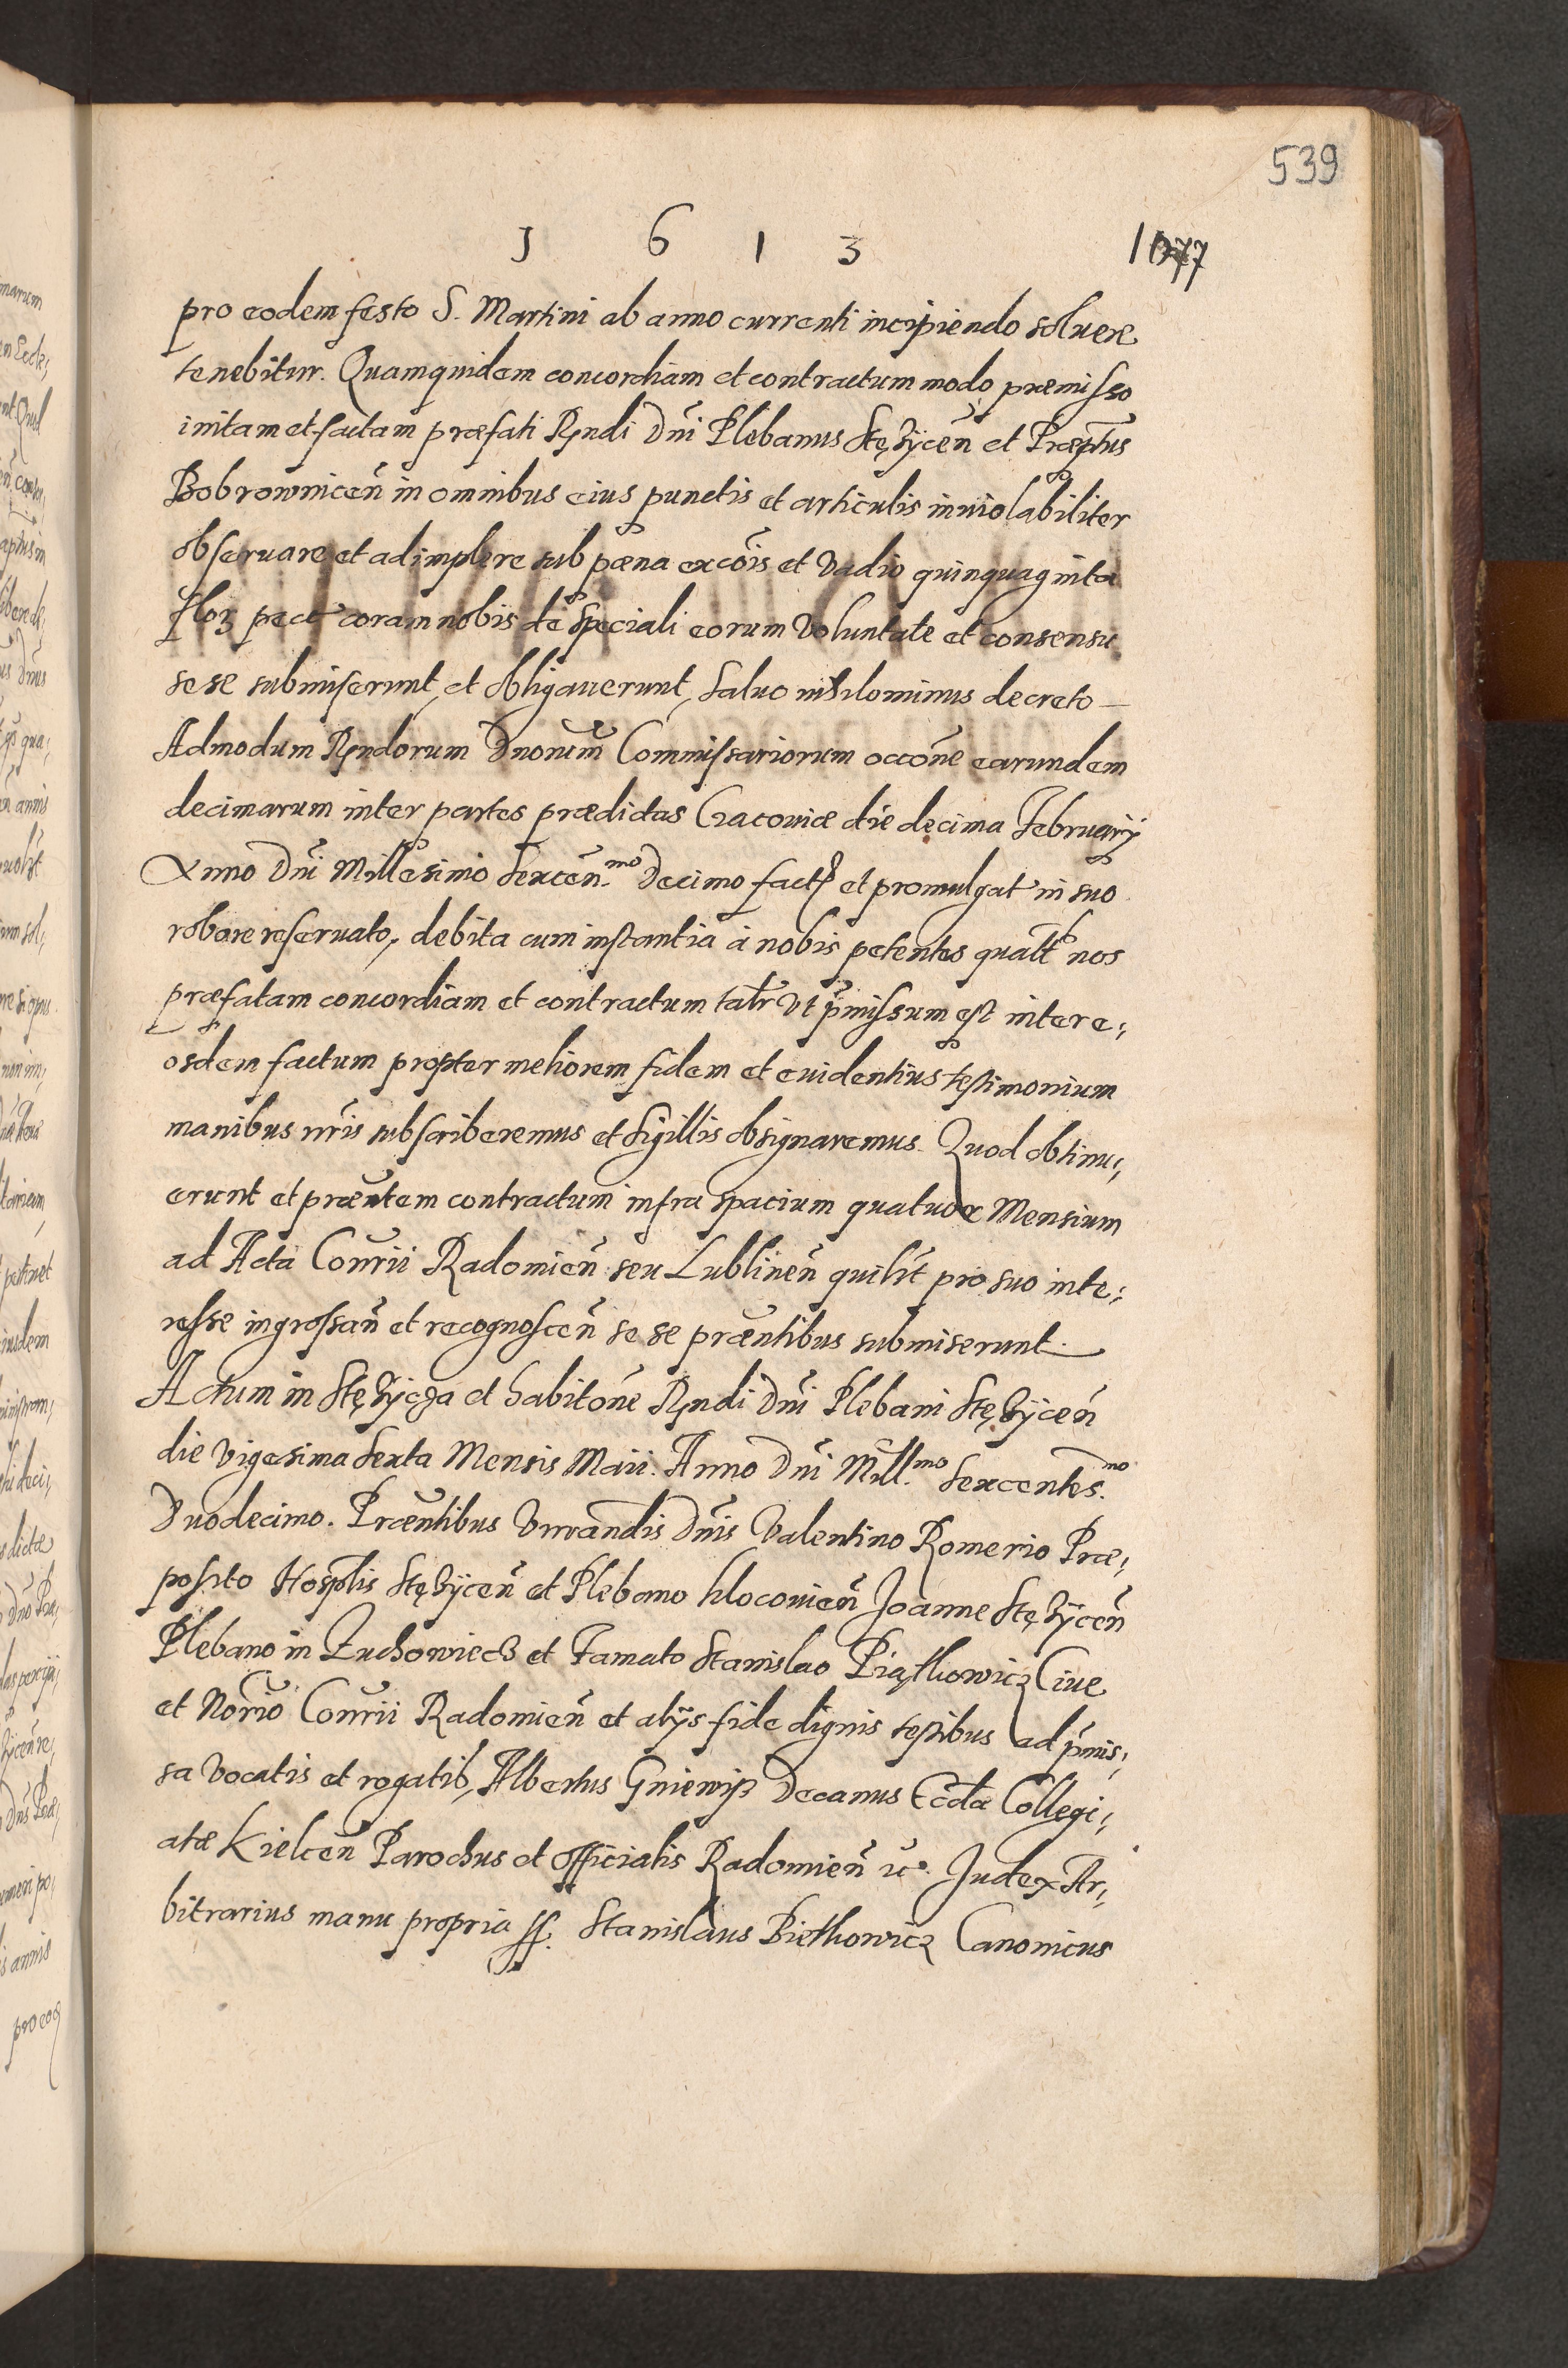 539
1 6 1 3 1077
pro eodem festo S. Martini ab anno currenti incipiendo soluere
tenebitur. Quamquidem concordiam et contractum modo præmisso
initam et factam præfati Rndi Dni Plebanus Stężycen̄ et Præptus
Bobrownicen̄ in omnibus eius punctis et articulis inuiolabiliter
obseruare et adimplere sub pæna excōis et vadio quinquaginta
floꝫ pect coram nobis de speciali eorum voluntate et consensu
sese submiserunt, et obligauerunt, saluo nihilominus decreto
Admodum Rndorum Dnorum Commissariorum occōne earundem
decimarum inter partes prædictas Cracouiæ die decima February
Anno Dni Millesimo Sexcen.mo Decimo fact et promulgat in suo
robore reseruato, debita cum instantia à nobis petentes quatt nos
præfatam concordiam et contractum talr vt p̄missum est inter e,,
osdem factum propter meliorem fidem et euidentius testimonium
manibus nr̄is subscriberemus et sigillis obsignaremus. Quod obtinu,,
erunt et præntem contractum infra spacium quatuor Mensium
ad Acta Consrii Radomien̄ seu Lublinen̄ quilt pro suo inte,,
resse ingrossan̄ et recognoscen̄ se se præntibus submiserunt.
Actum in Stężycza et habitōne Rndi Dni Plebani Stężycen̄
die vigesima sexta Mensis Maii. Anno Dni Mill.mo Sexcentes.mo
Duodecimo. Præntibus Vnrandis Dnis Valentino Romerio Præ,,
posito Hosptlis Stężycen̄ et Plebano kłocouien̄ Joanne Stężycen̄
Plebano in Żuchowiecz et Famato Stanislao Piątkowicz Ciue
et Norio Consrii Radomien̄ et alÿs fide dignis testibus ad p̄mis,,
sa vocatis et rogatib, Albertus Gniewisz Decanus Eccłæ Collegi,,
atæ Kielcen̄ Parochus et officialis Radomien̄ uc. Judex Ar,,
bitrarius manu propria ss. Stanislaus Pietkowicz Canonicus